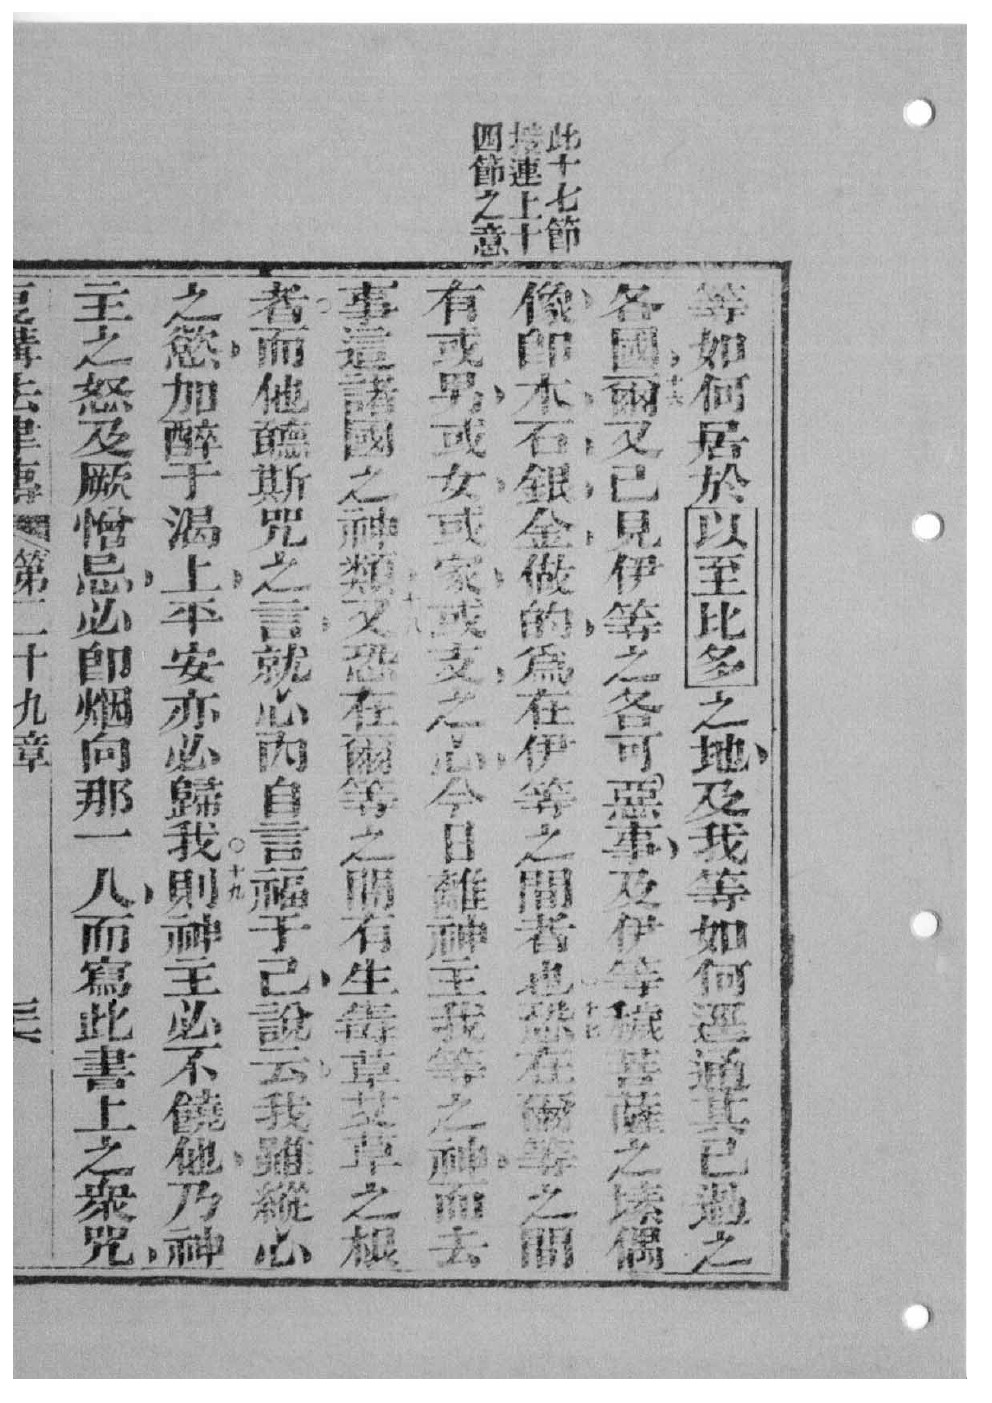 此十七節
接連上十
四節之意
等如何居於以至比多之地及我等如何逕通其已過之
各國十六爾又已見伊等之各可惡事及伊等穢菩薩之埭偶
像卽木石銀金做的爲在伊等之間者也十七恐在爾等之間
有或男或女或家或支之心今日離神主我等之神而去
事這諸國之神類十八又恐在爾等之間有生毒草艾草之根
者而他聽斯咒之言就心內自言福于己說云我雖縱心
之慾加醉于渴上平安亦必歸我○十九則神主必不饒他乃神
主之怒及厥憎忌必卽烟向那一人而寫此書上之衆咒
復講法律書 第二十九章 三